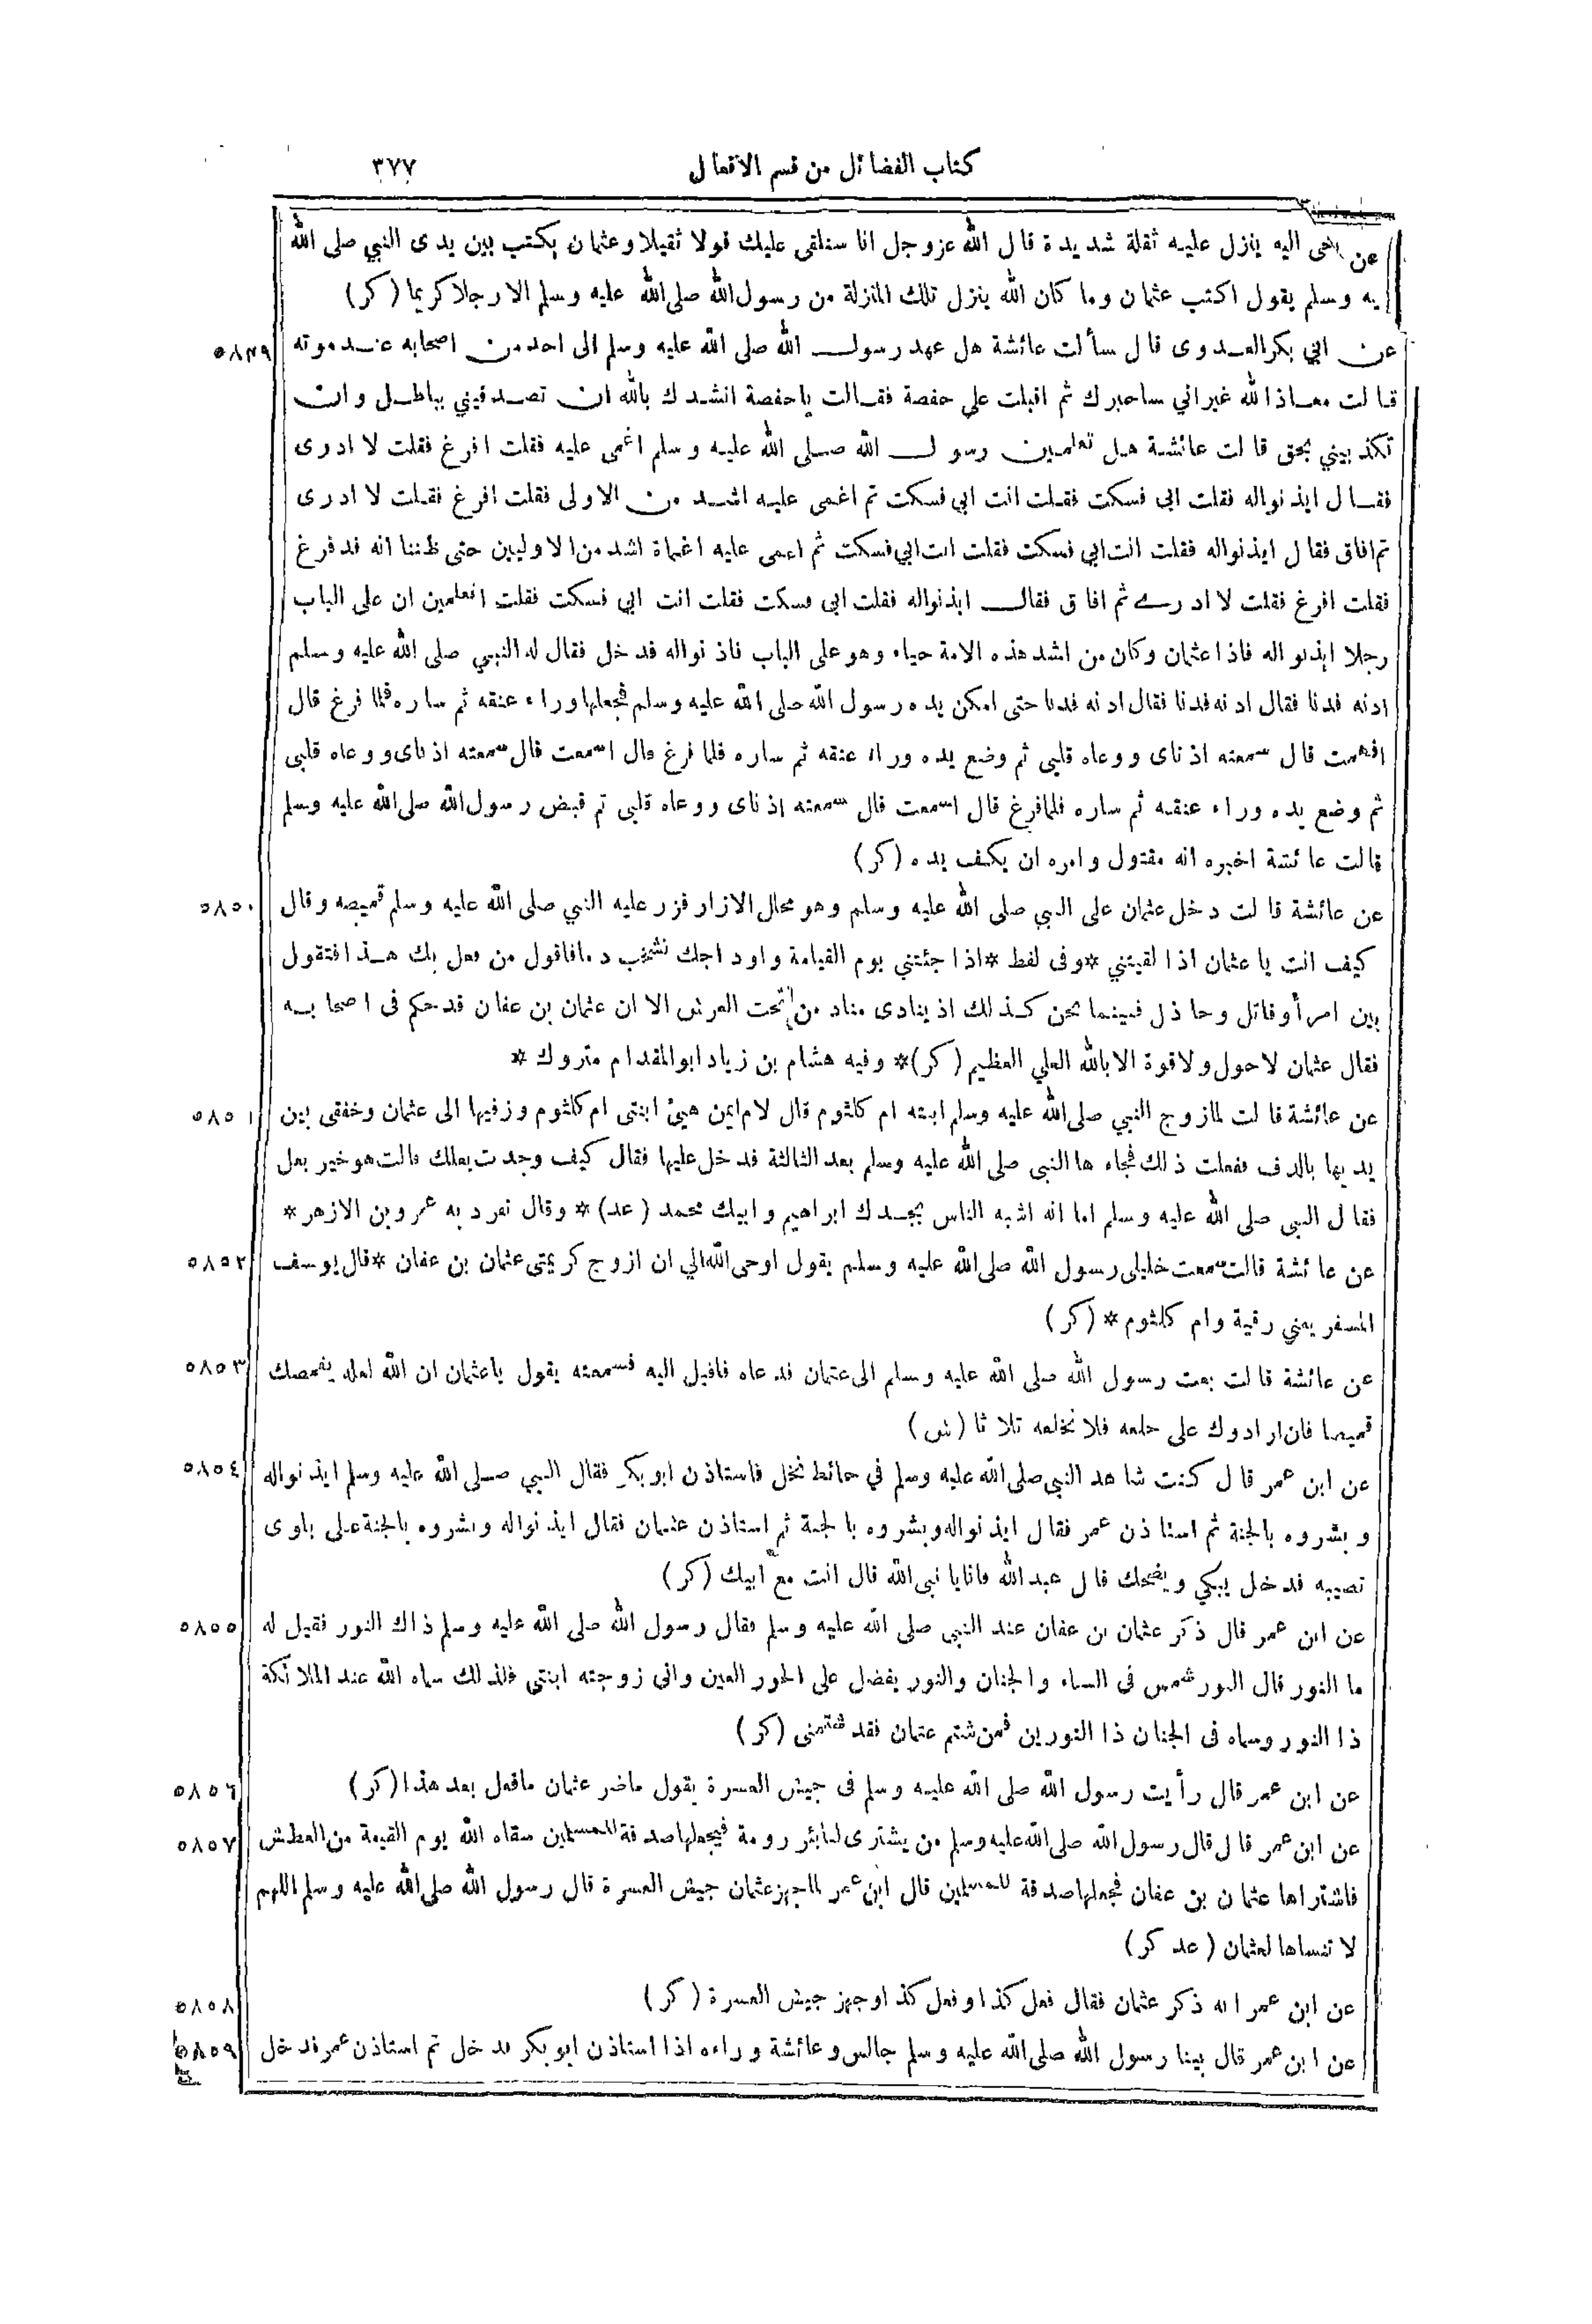 كتاب الفضائل من قسم الافعال ٣٧٧
عن اليه ينزل عليه ثقلة شديدة قال الله عزوجل انا سنلقى عليك قولا ثقيلا وعثمان يكتب بين يدى النبي صلى الله
يه وسلم يقول اكتب عثمان وما كان الله ينزل تلك المنزلة من رسول الله صلى الله عليه وسلم الا رجلا كريما (كر)
عن ابي بكر العدوى قال سألت عائشة هل عهد رسول الله صلى الله عليه وسلم الى احد من اصحابه عند موته ٥٨٤٩
قالت معاذ الله غير اني ساخبرك ثم اقبلت على حفصة فقالت يا حفصة انشدك بالله ان تصدقيني بباطل وان
تكذبيني بحق قالت عائشة هل تعلمين رسول الله صلى الله عليه وسلم اغمى عليه فقلت افرغ فقلت لا ادرى
فقال ايذنواله فقلت ابى فسكت فقلت انت ابي فسكت ثم اغمى عليه اشد من الاولى فقلت افرغ فقلت لا ادرى
ثم افاق فقال ايذنواله فقلت انت ابي فسكت فقلت انت ابي فسكت ثم اغمى عليه اغماة اشد من الاوليين حتى ظننا انه قد فرغ
فقلت افرغ فقلت لا ادرے ثم افاق فقال ايذنواله فقلت ابى فسكت فقلت انت ابى فسكت فقلت اتعلمين ان على الباب
رجلا ايذنواله فاذا عثمان وكان من اشد هذه الامة حياء وهو على الباب فاذنواله فدخل فقال له النبي صلى الله عليه وسلم
ادنه فدنا فقال ادنه فدنا فقال ادنه فدنا حتى امكن يده رسول الله صلى الله عليه وسلم فجعلها وراء عنقه ثم ساره فلما فرغ قال
افهمت قال سمعته اذناى ووعاه قلبى ثم وضع يده وراء عنقه ثم ساره فلما فرغ قال اسمعت قال سمعته اذناى ووعاه قلبى
ثم وضع يده وراء عنقه ثم ساره فلما فرغ قال اسمعت قال سمعته اذناى ووعاه قلبى ثم قبض رسول الله صلى الله عليه وسلم
قالت عائشة اخبره انه مقتول وامره ان يكف يده (كر)
عن عائشة قالت دخل عثمان على النبي صلى الله عليه وسلم وهو محلل الازار فزر عليه النبي صلى الله عليه وسلم قميصه وقال ٥٨٥٠
كيف انت يا عثمان اذا لقيتني *وفى لفظ *اذا جئتني يوم القيامة واوداجك تشخب دما فاقول من فعل بك هذا فتقول
بين امر أو قاتل وخاذل فبينما نحن كذلك اذ ينادى مناد من تحت العرش الا ان عثمان بن عفان قد حكم فى اصحابه
فقال عثمان لاحول ولاقوة الا بالله العلي العظيم (كر)* وفيه هشام بن زياد ابو المقدام متروك *
عن عائشة قالت لما زوج النبي صلى الله عليه وسلم ابنته ام كلثوم قال لام ايمن هيئ ابنتى ام كلثوم وزفيها الى عثمان وخفقى بين ٥٨٥١
يديها بالدف ففعلت ذلك فجاءها النبى صلى الله عليه وسلم بعد الثالثة فدخل عليها فقال كيف وجدت بعلك قالت هو خير بعل
فقال النبى صلى الله عليه وسلم اما انه اشبه الناس بجدك ابراهيم وابيك محمد (عد)* وقال تفرد به عمرو بن الازهر*
عن عائشة قالت سمعت خليلى رسول الله صلى الله عليه وسلم يقول اوحى الله الي ان ازوج كريمتى عثمان بن عفان *قال يوسف ٥٨٥٢
المسفر يعني رقية وام كلثوم* (كر)
عن عائشة قالت بعت رسول الله صلى الله عليه وسلم الى عثمان فدعاه فاقبل اليه فسمعته يقول يا عثمان ان الله لعله يقمصك ٥٨٥٣
قميصا فان ارادوك على خلعه فلا تخلعه ثلاثا (ش)
عن ابن عمر قال كنت شاهد النبى صلى الله عليه وسلم في حائط نخل فاستاذن ابوبكر فقال النبي صلى الله عليه وسلم ايذنواله ٥٨٥٤
وبشروه بالجنة ثم استاذن عمر فقال ايذنواله وبشروه بالجنة ثم استاذن عثمان فقال ايذنواله وبشروه بالجنة على بلوى
تصيبه فدخل يبكي ويضحك قال عبد الله فانا يا نبى الله قال انت مع ابيك (كر)
عن ابن عمر قال ذكر عثمان بن عفان عند النبي صلى الله عليه وسلم فقال رسول الله صلى الله عليه وسلم ذاك النور فقيل له ٥٨٥٥
ما النور قال النور شمس فى السماء والجنان والنور يفضل على الحور العين وانى زوجته ابنتى فلذلك سماه الله عند الملائكة
ذا النور وسماه فى الجنان ذا النورين فمن شتم عثمان فقد شتمنى (كر)
عن ابن عمر قال رأيت رسول الله صلى الله عليه وسلم فى جيش العسرة يقول ماضر عثمان مافعل بعد هذا (كر) ٥٨٥٦
عن ابن عمر قال قال رسول الله صلى الله عليه وسلم من يشترى لنا بئر رومة فيجعلها صدقة للمسلمين سقاه الله يوم القيمة من العطش ٥٨٥٧
فاشتراها عثمان بن عفان فجعلها صدقة للمسلمين قال ابن عمر لما جهز عثمان جيش العسرة قال رسول الله صلى الله عليه وسلم اللهم
لا تنساها لعثمان (عد كر)
عن ابن عمر انه ذكر عثمان فقال فعل كذا وفعل كذا وجهز جيش العسرة (كر) ٥٨٥٨
عن ابن عمر قال بينا رسول الله صلى الله عليه وسلم جالس وعائشة وراءه اذا استاذن ابوبكر فدخل ثم استاذن عمر فدخل ٥٨٥٩